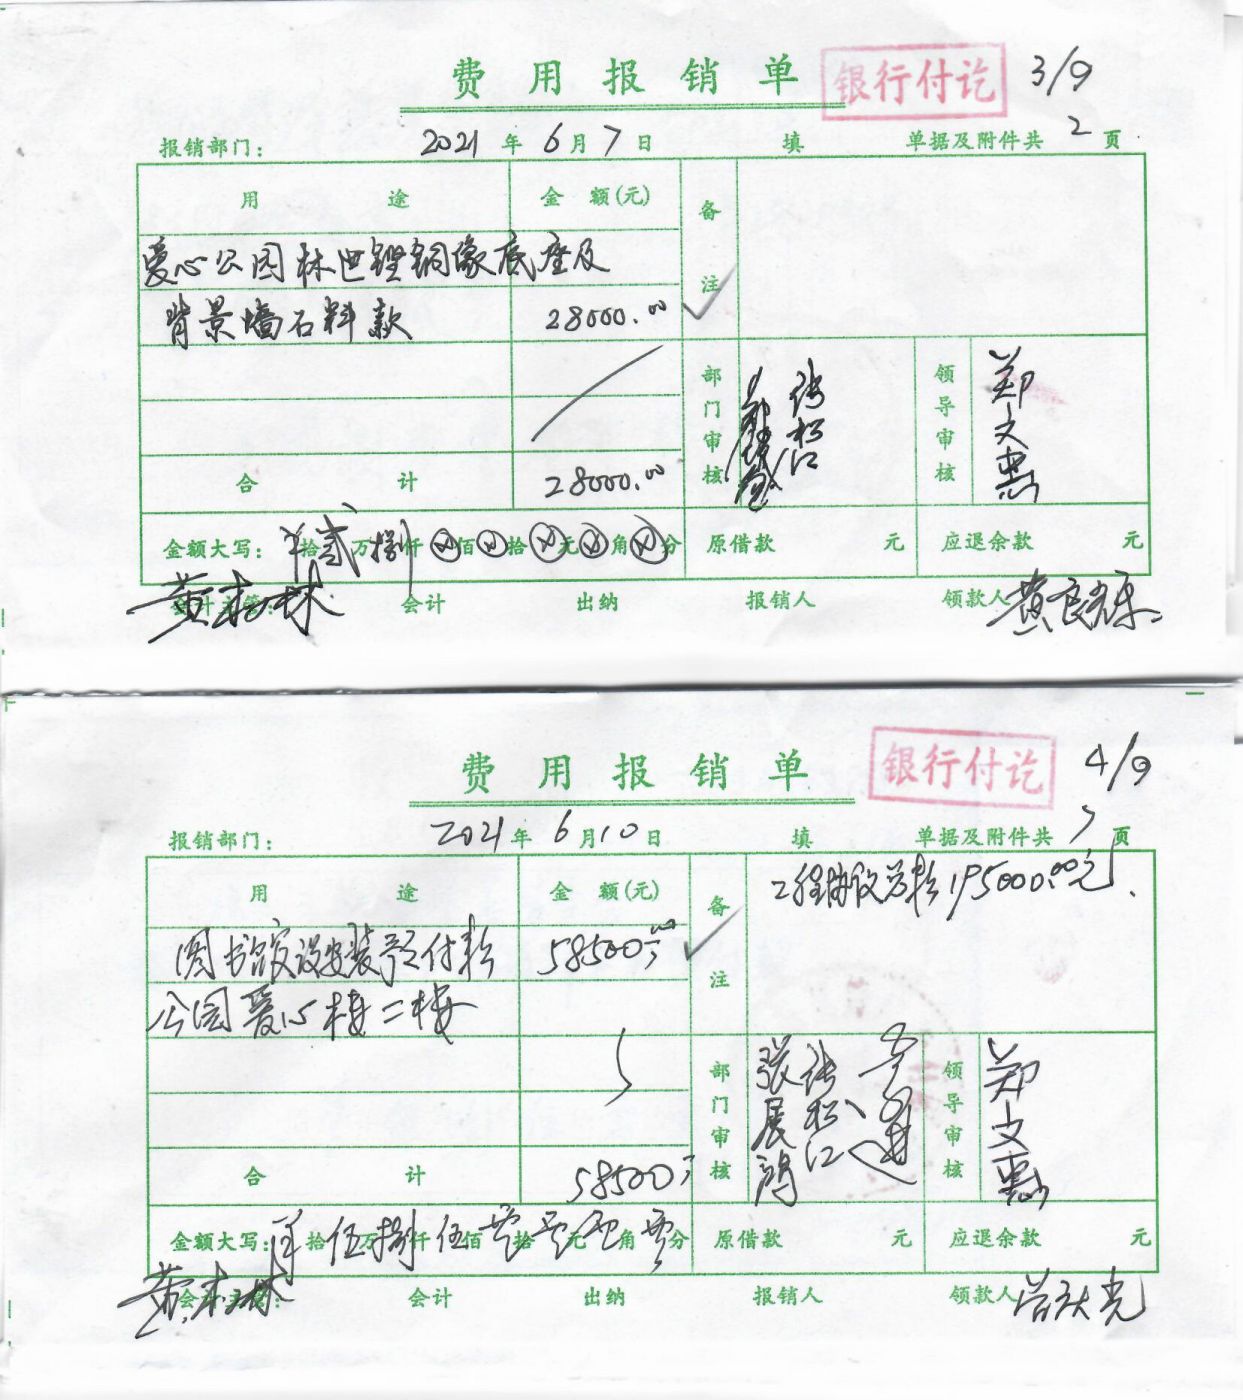 费用报销单 银行付讫 3/9
报销部门： 2021 年 6 月 7 日 填 单据及附件共 2 页
用途 金额(元) 备注
爱心公园林世铿铜像底座及
背景墙石料款 28000.00
部门审核 张松江 领导审核 郑文惠
合计 28000.00
金额大写： 拾贰万捌仟 佰 拾 元 角 分 原借款 元 应退余款 元
会计主管： 黄木林 会计 出纳 报销人 领款人 黄良乐
费用报销单 银行付讫 4/9
报销部门： 2021 年 6 月 10 日 填 单据及附件共 页
用途 金额(元) 备注 工程 总款195000.00元
图书馆设安装预付款 58500
公园爱心楼二楼
部门审核 张展鸿 张松江 领导审核 郑文惠
合计 58500
金额大写： 拾伍万捌仟伍佰零拾零元零角零分 原借款 元 应退余款 元
会计主管： 黄木林 会计 出纳 报销人 领款人